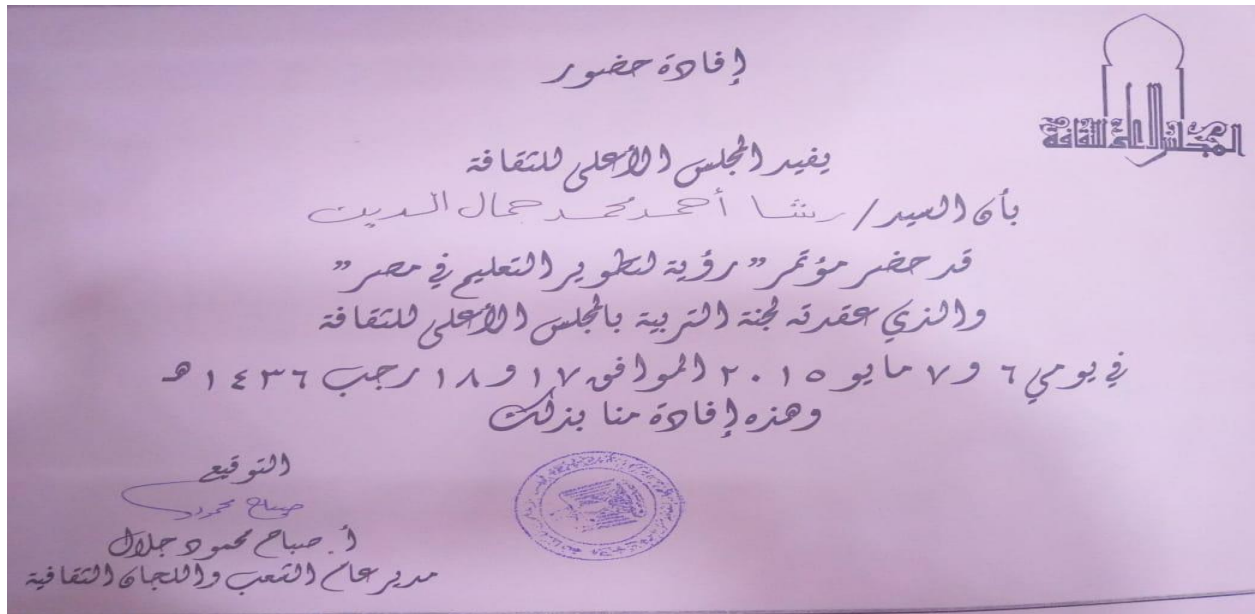 المجلس الأعلى للثقافة
إفادة حضور
يفيد المجلس الأعلى للثقافة
بأن السيد / رشا أحمد محمد جمال الدين
قد حضر مؤتمر "رؤية لتطوير التعليم في مصر"
والذي عقدته لجنة التربية بالمجلس الأعلى للثقافة
في يومي ٦ و ٧ مايو ٢٠١٥ الموافق ١٧ و ١٨ رجب ١٤٣٦ هـ
وهذه إفادة منا بذلك
التوقيع
صباح محمود
أ. صباح محمود جلال
مدير عام الشعب واللجان الثقافية